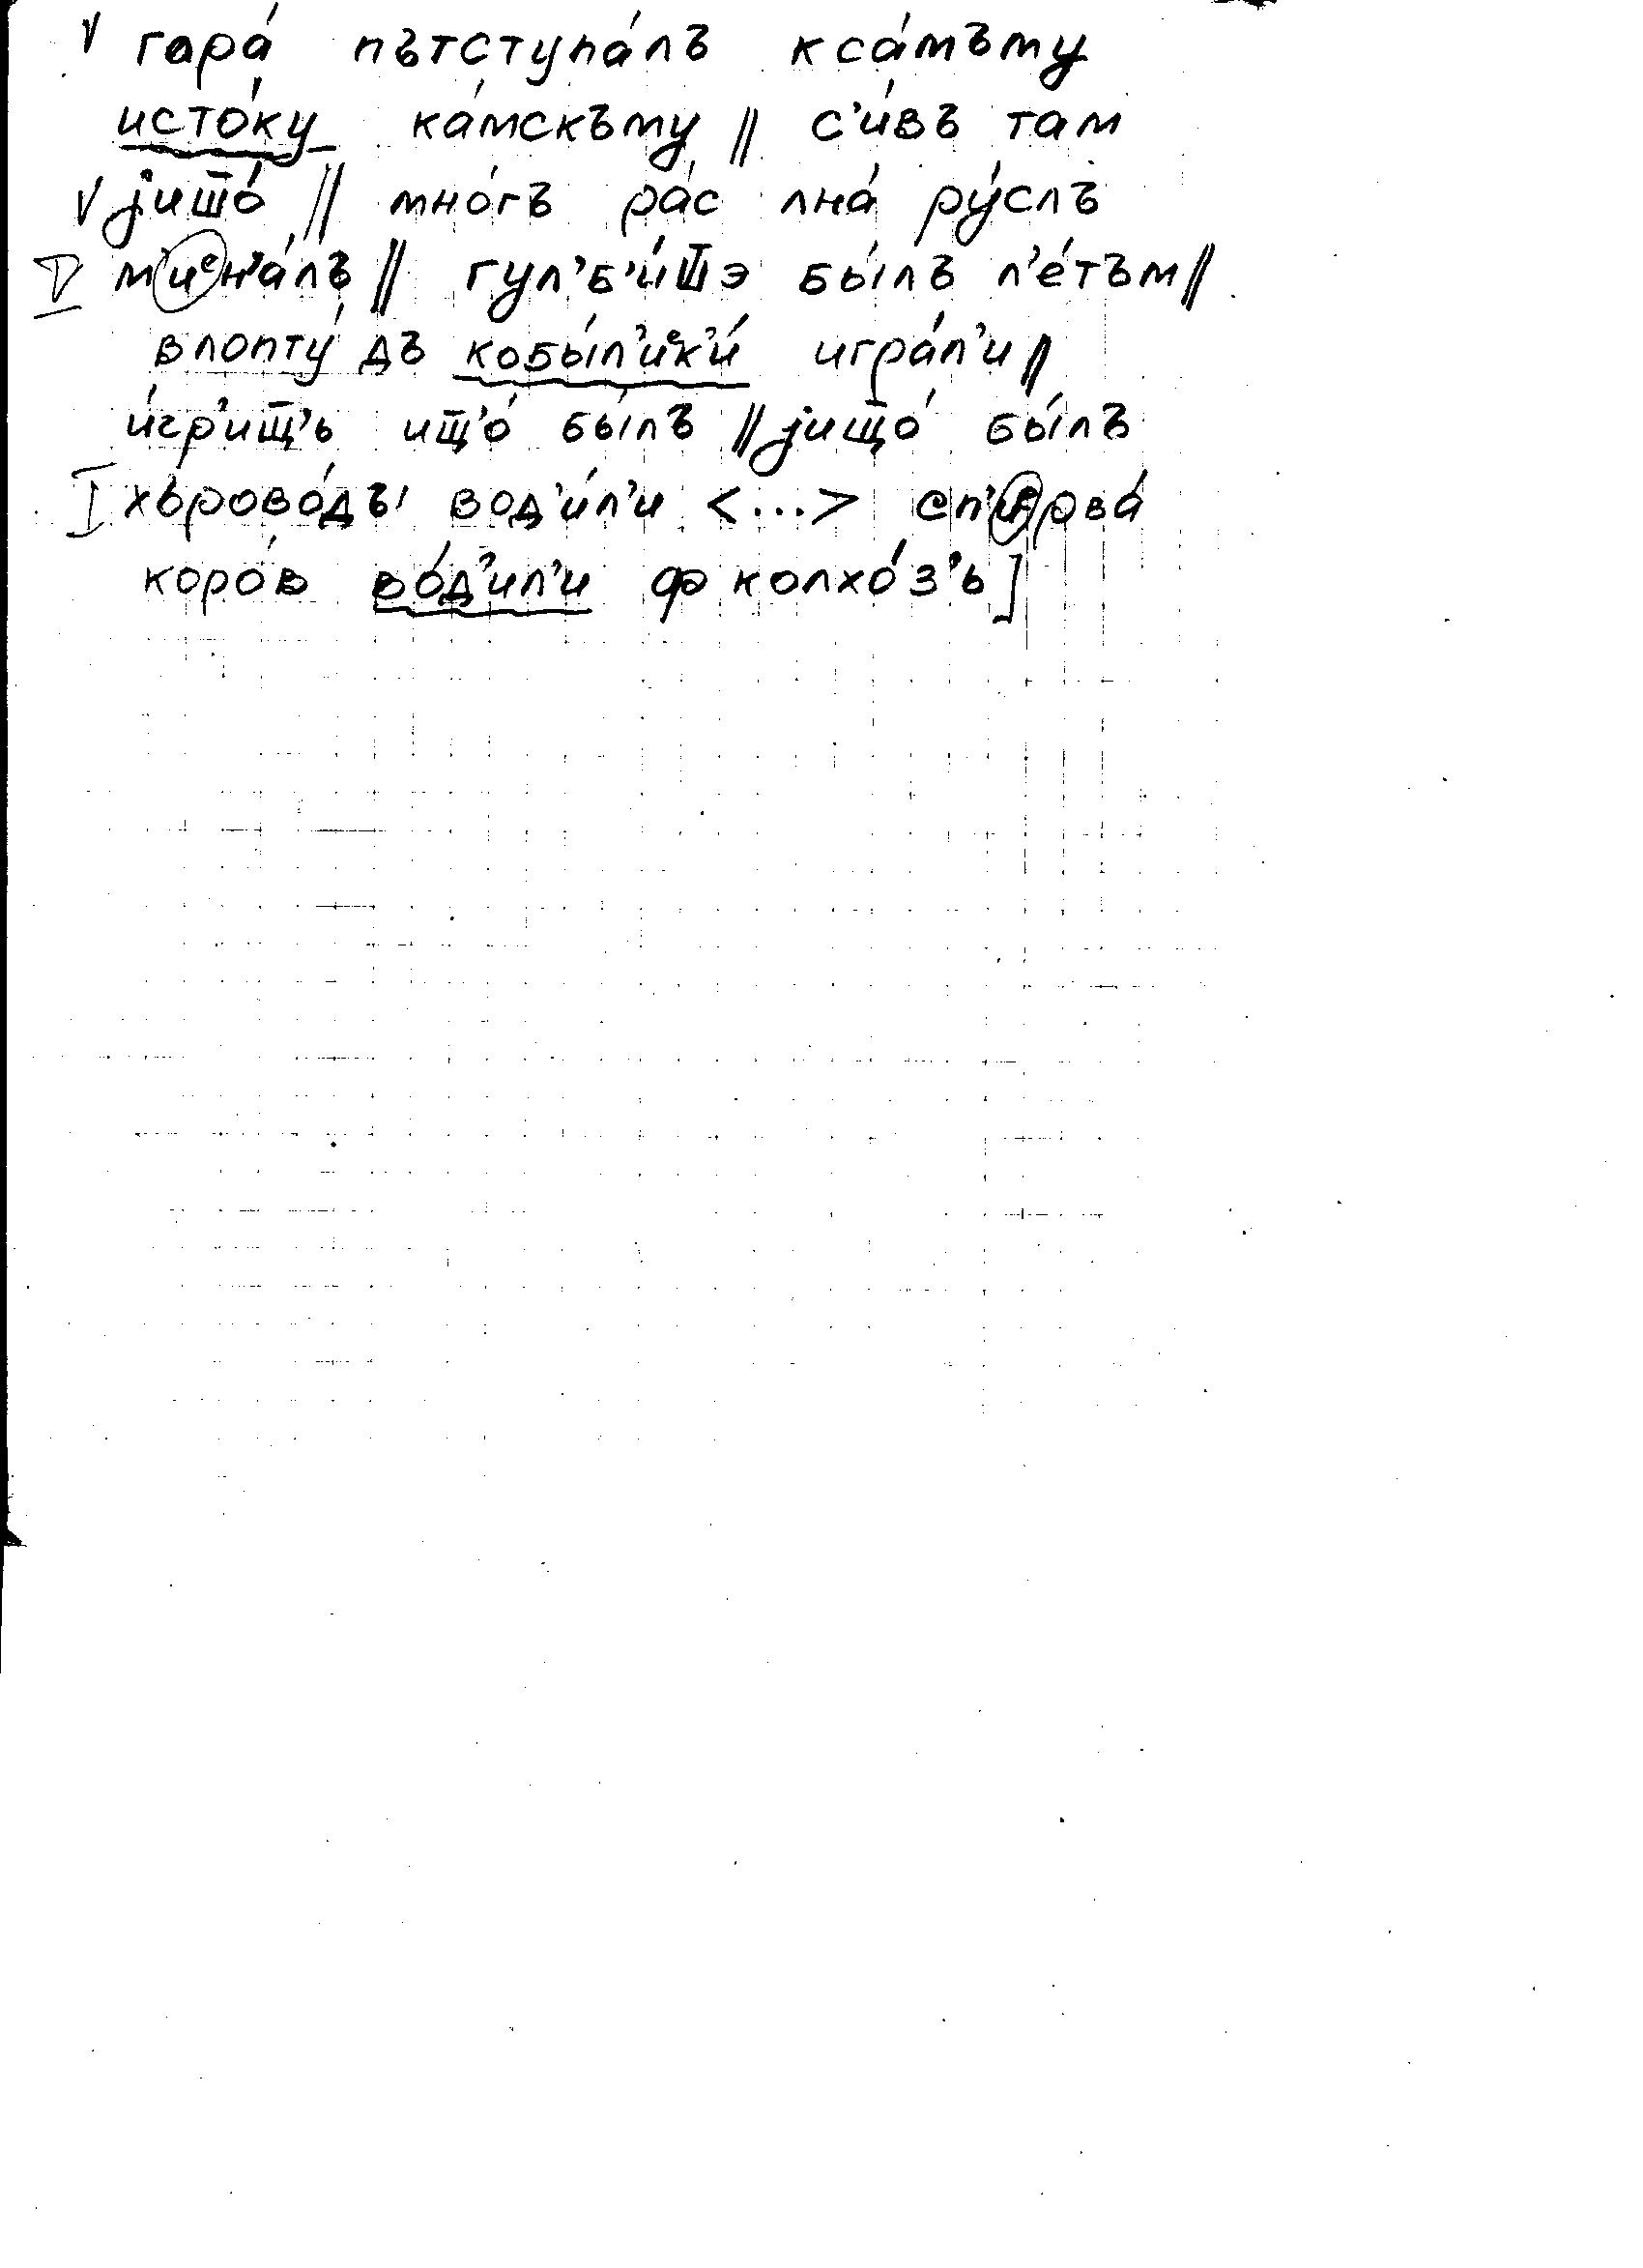 V гора́ пътступа́лъ кса́мъму
исто́ку ка́мскъму // с'и́въ там
V јиш̄о́ // мно́гъ ра́с лна́ ру́слъ
V м'иᵉн'а́лъ // гул'б'и́ш̄э бы́лъ л'е́тъм //
влопту́ дъ кобы́л'иᵉк'и́ игра́л'и //
и́гр'ищ̄'ь ищ̄'о́ бы́лъ // јищ̄о́ бы́лъ
I хърово́ды вод'и́л'и <...> сп'иᵉрва́
коро́в во́д'ил'и ф колхо́з'ь]